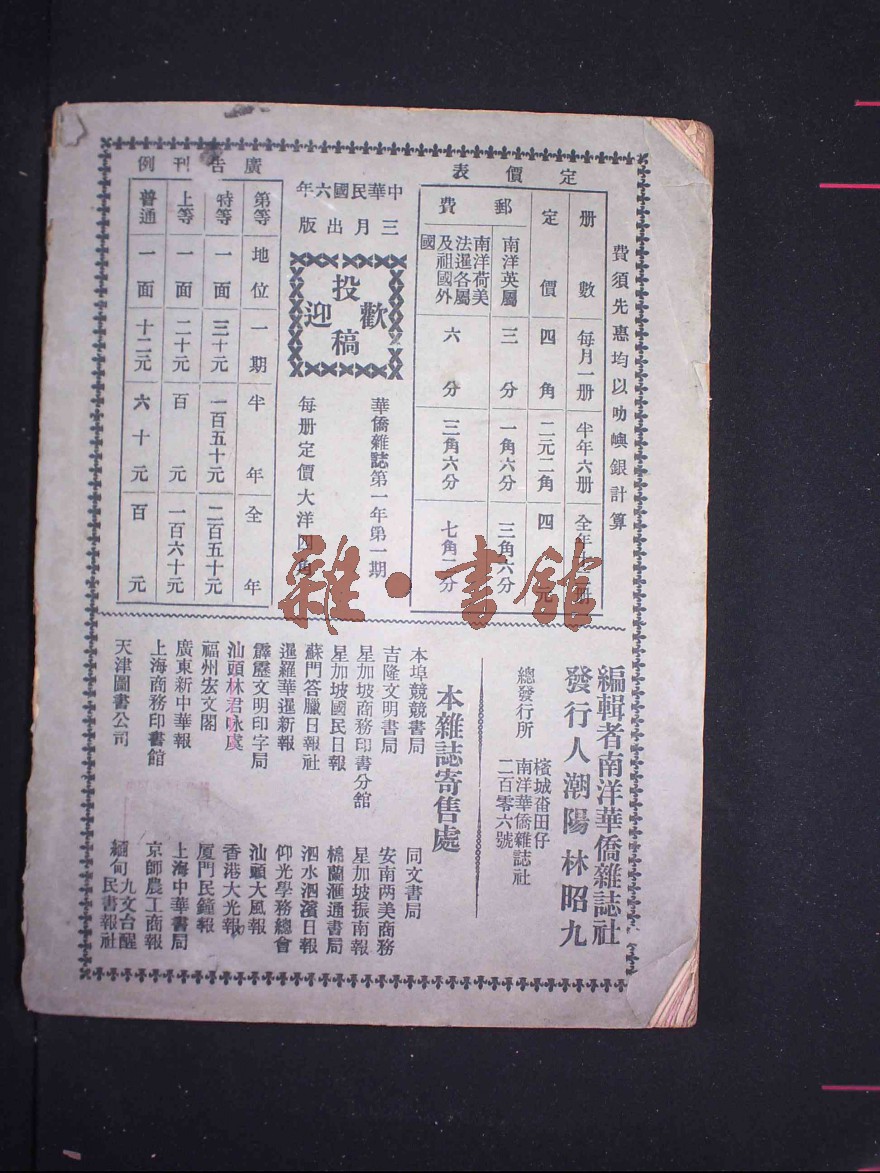 費須先惠均以叻嶼銀計算
定價表
册數 每月一册 半年六册 全年十二册
定價 四角 二元二角 四元
郵費
南洋英屬 三分 一角六分 三角六分
南洋荷美法暹各屬及祖國外國 六分 三角六分 七角二分
中華民國六年
三月出版
歡迎投稿
華僑雜誌第一年第一期
每册定價大洋四角
廣告刊例
第等 地位 一期 半年 全年
特等 一面 三十元 一百五十元 二百五十元
上等 一面 二十元 百元 一百六十元
普通 一面 十二元 六十元 百元
編輯者南洋華僑雜誌社
發行人潮陽林昭九
總發行所
檳城畓田仔
南洋華僑雜誌社
二百零六號
本雜誌寄售處
本埠競競書局
同文書局
吉隆文明書局
安南两美商務
星加坡商務印書分舘
星加坡振南報
星加坡國民日報
棉蘭滙通書局
蘇門答臘日報社
泗水泗濱日報
暹羅華暹新報
仰光學務總會
霹靂文明印字局
汕頭大風報
汕頭林君咏虞
香港大光報
福州宏文閣
厦門民鐘報
廣東新中華報
上海中華書局
上海商務印書館
京師農工商報
天津圖書公司
緬甸九文台醒民書報社
雜·書舘